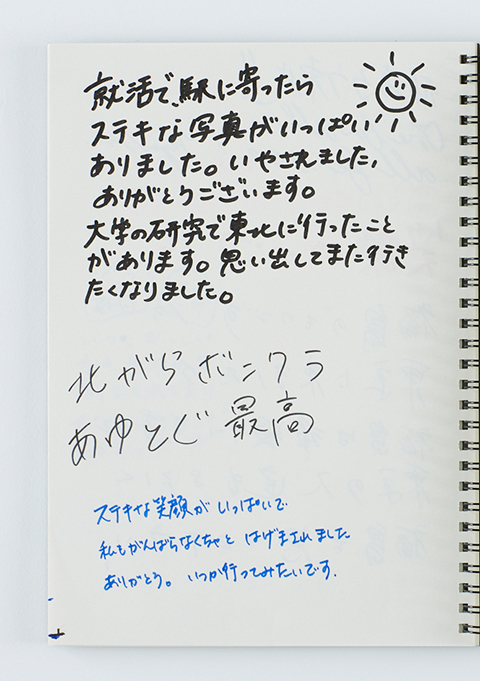 就活で、駅に寄ったら
ステキな写真がいっぱい
ありました。いやされました,
ありがとうございます。
大学の研究で東北に行ったこと
があります。思い出してまた行き
たくなりました。
北がらボンクラ
あゆとぐ 最高
ステキな笑顔が いっぱいで
私もがんばらなくちゃと はげまされました
ありがとう。 いつか行ってみたいです.